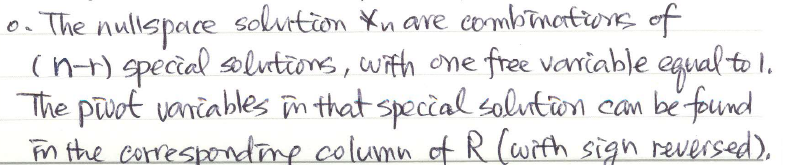 o. The nullspace solution Xn are combinations of
(n-r) special solutions, with one free variable equal to 1.
The pivot variables in that special solution can be found
in the corresponding column of R (with sign reversed).